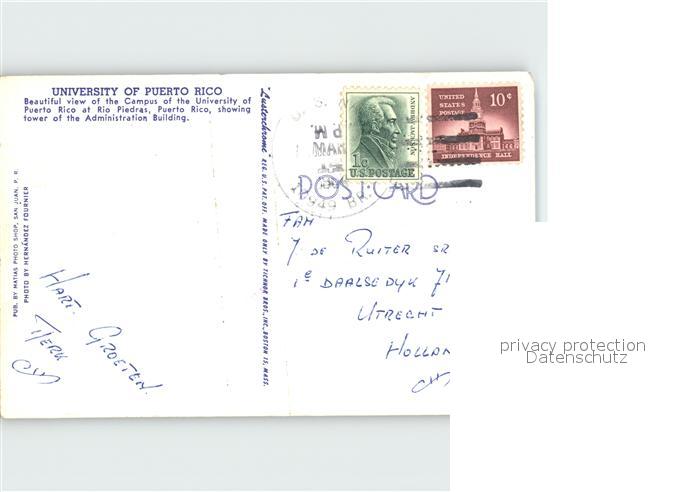 UNIVERSITY OF PUERTO RICO
Beautiful view of the Campus of the University of
Puerto Rico at Rio Piedras, Puerto Rico, showing
tower of the Administration Building.
PUB. BY MATIAS PHOTO SHOP, SAN JUAN, P. R.
PHOTO BY HERNÁNDEZ FOURNIER
"Lusterchrome" REG. U.S. PAT. OFF. MADE ONLY BY TICHNOR BROS., INC., BOSTON 15, MASS.
HART. GROETEN.
TJERK
P.M.
MAR
ANDREW JACKSON
1c
U.S. POSTAGE
UNITED
STATES
POSTAGE
10¢
INDEPENDENCE HALL
POST CARD
FAM
J DE RUITER SR
1e DAALSEDYK 71
UTRECHT
HOLLAN
privacy protection
Datenschutz